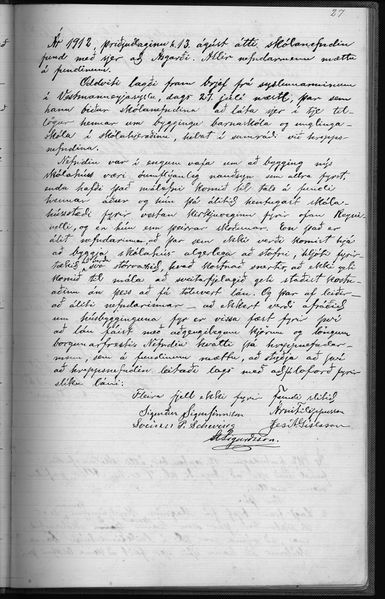 27
Ár 1912 þriðjudaginn þ. 13. ágúst átti skólanefndin
fund með sjer að Ásgarði. Allir nefndarmenn mættu
á fundinum.
Oddviti lagði fram brjef frá sýslumanninum
í Vestmannaeyjasýslu, dags. 27. júlí næstl., þar sem
hann biður skólanefndina að láta sjer í tje til-
lögur hennar um byggingu barnaskóla og unglinga-
skóla í skólahjeraðinu, helst í samráði við hrepps-
nefndina.
Nefndin var í engum vafa um að bygging nýs
skólahúss væri óumflýanleg nauðsyn sem allra fyrst,
enda hafði það málefni komið til tals á fundi
hennar áður og hún þá álitið hentugast skóla-
hússtæði fyrir vestan kirkjuveginn fyrir ofan Reyni-
velli, og er hún enn þeirrar skoðunar. En það er
álit nefndarinnar, að þar sem ekki verði komist hjá
að byggja skólahús algerlega að stofni, hljóti fyrir-
tækið að verða svo stórvaxið, hvað kostnað snertir, að ekki geti
komið til mála, að sveitarfjelagið geti staðist kostn-
aðinn án þess að fá tiltekið lán. Og þar af leið-
andi áliti nefndarinnar að ekkert verði afráðið
um húsbygginguna, fyr er vissa fæst fyrir því
að lán fáist með aðgengilegum kjörum og löngum
borgunarfresti. Nefndin kvatti þá hreppsnefndar-
menn, sem á fundinum mættu, að styðja að því
að hreppsnefndin leitaði lags með aðstoð fyrir
slíku láni.
Fleira fjell ekki fyrir. Fundi slitið
Sigurður Sigurfinnsson Árni Filippusson
Sveinn P. Scheving Jes A. Gíslason